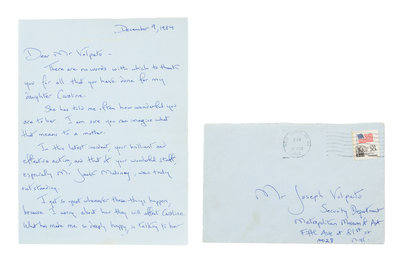 December 9, 1984
Dear Mr Volpato -
There are no words with which to thank
you for all that you have done for my
daughter Caroline.
She has told me often how wonderful you
are to her. I am sure you can imagine what
that means to a mother.
In this latest incident, your brilliant and
effective action, and that of your wonderful staff,
especially Mr. Jack Maloney, was truly
outstanding.
I get in great when these things happen,
because I worry about how they will affect Caroline.
What has made me so deeply happy, is talking to her
Mr Joseph Volpato
Security Department
Metropolitan Museum of Art
Fifth Ave at 81st St
10028
N.Y.